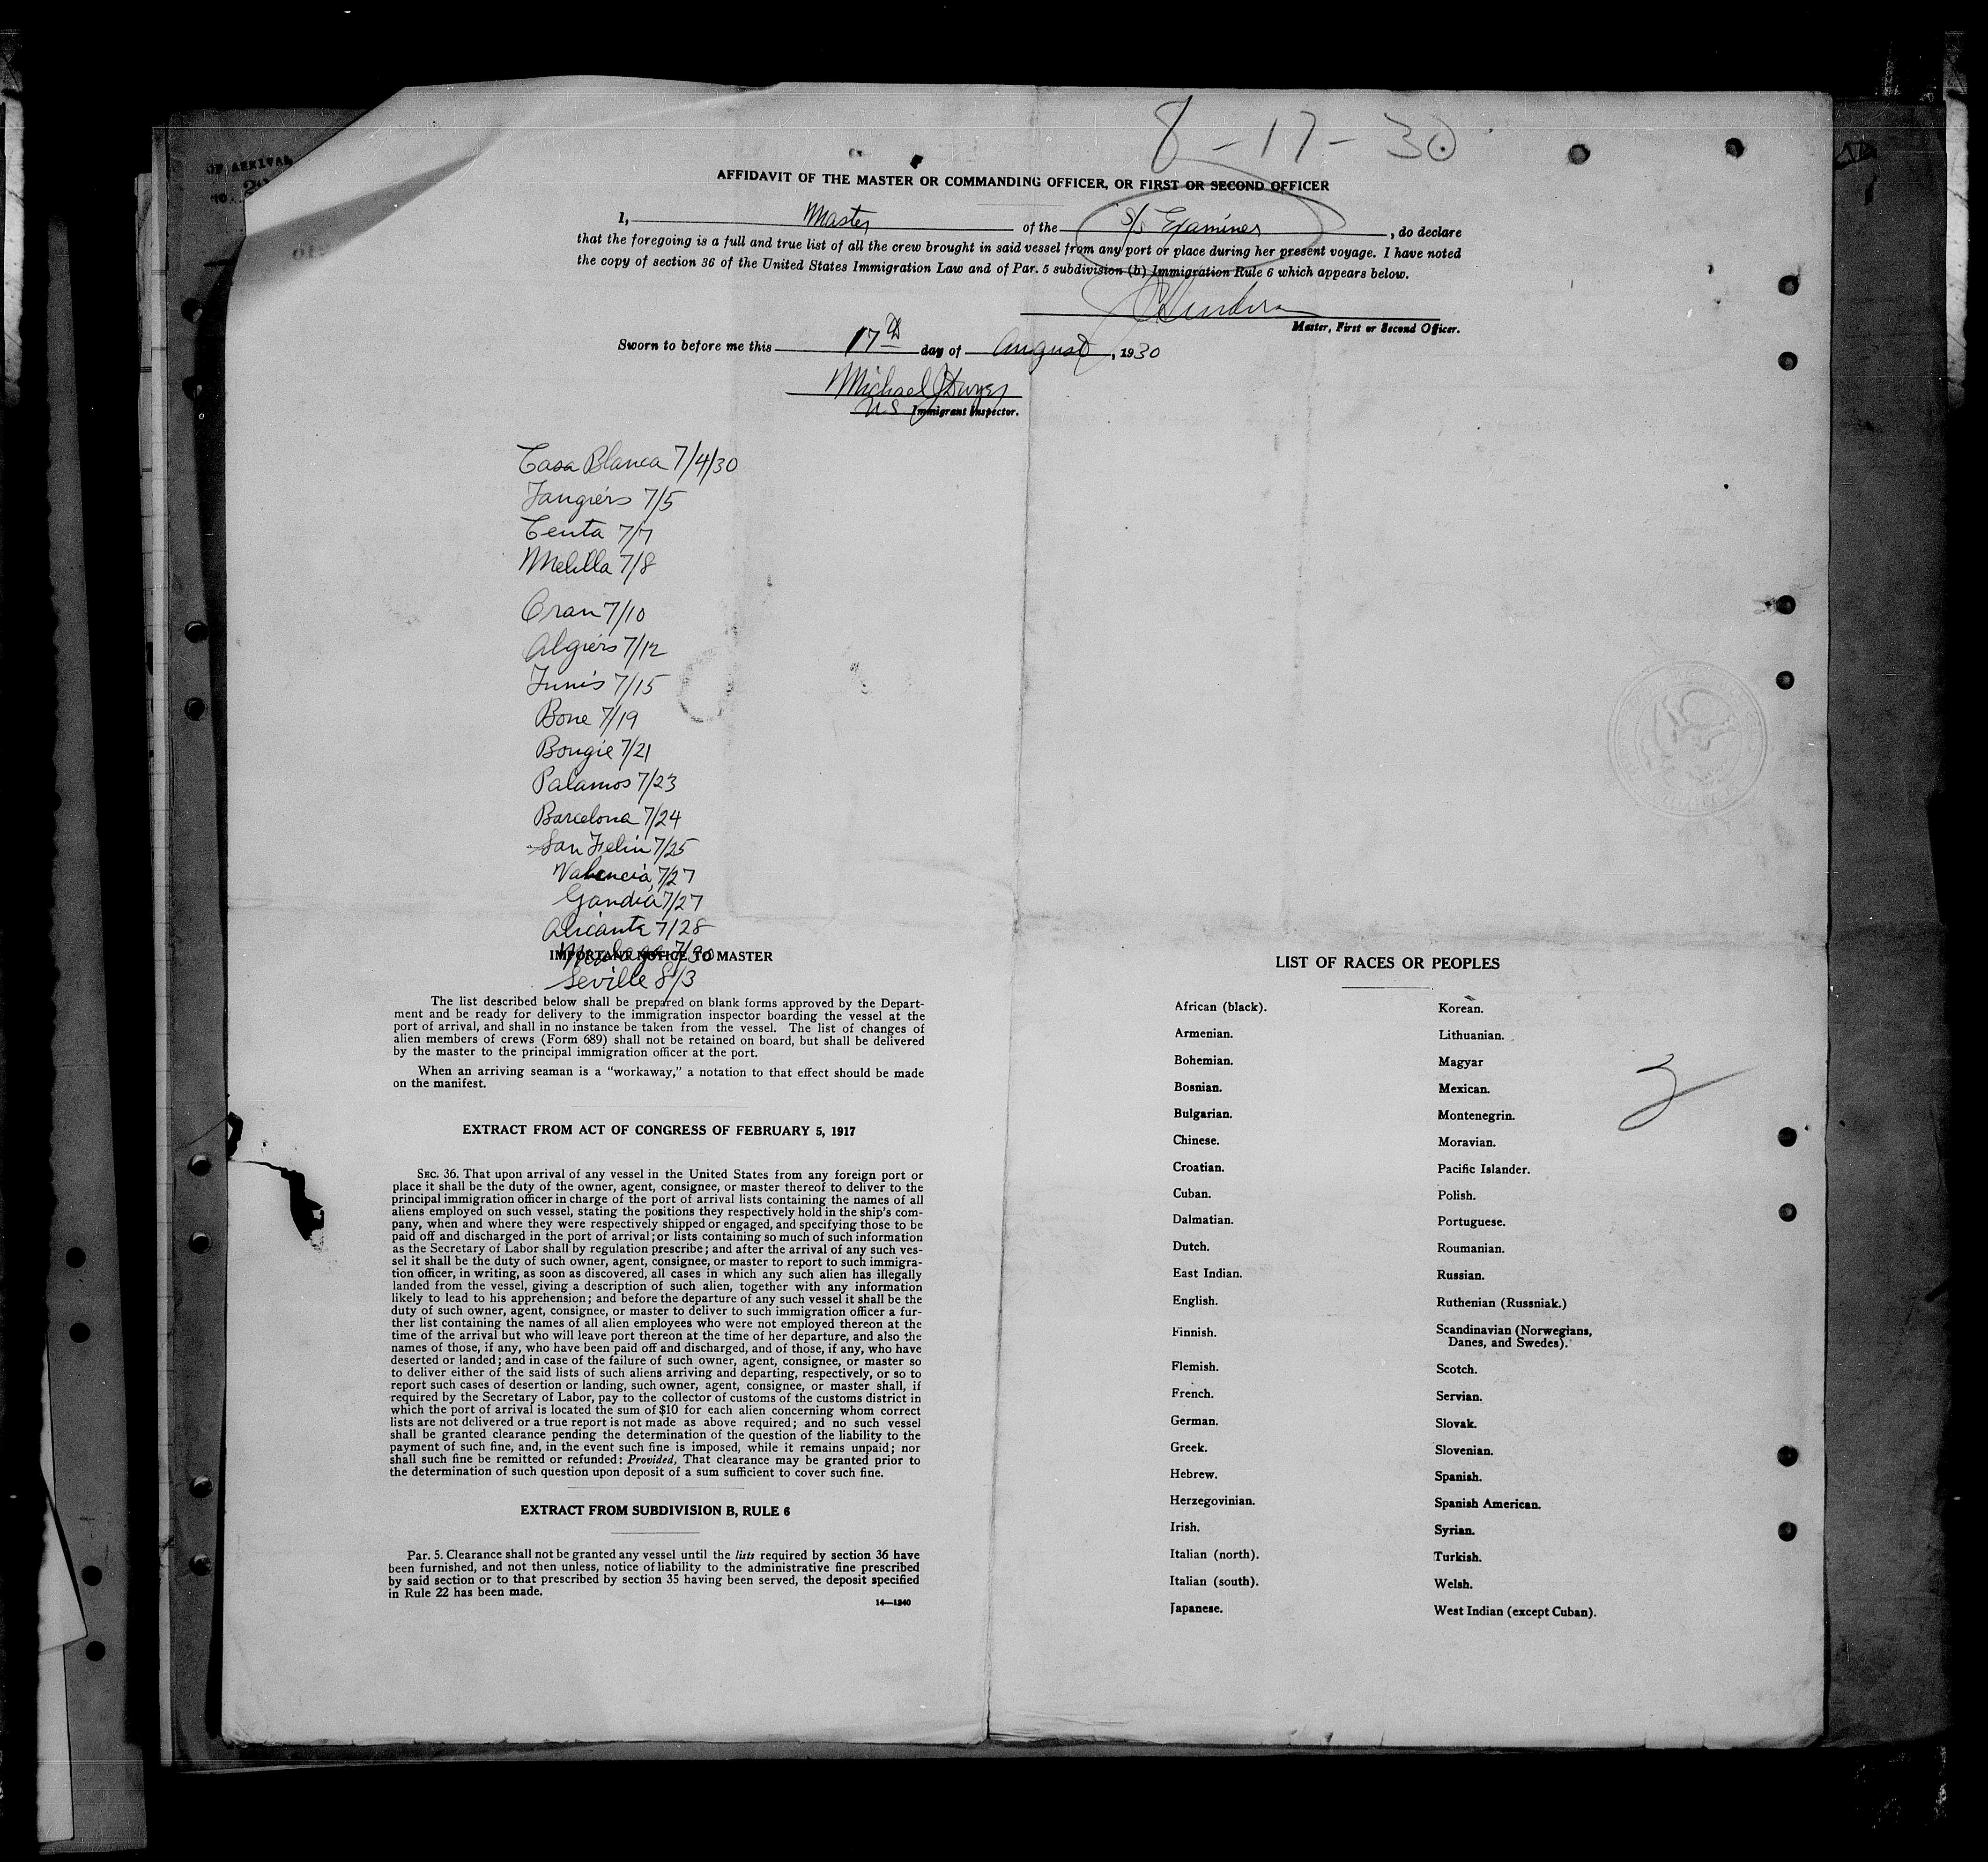 8-17-30
OF ARRIVAL
AFFIDAVIT OF THE MASTER OR COMMANDING OFFICER, OR FIRST OR SECOND OFFICER
I, Master of the S/S Examiner, do declare
that the foregoing is a full and true list of all the crew brought in said vessel from any port or place during her present voyage. I have noted
the copy of section 36 of the United States Immigration Law and of Par. 5 subdivision (b) Immigration Rule 6 which appears below.
Master, First or Second Officer.
Sworn to before me this 17th day of August, 1930
Michael
US Immigrant Inspector.
Casa Blanca 7/4/30
Tangiers 7/5
Ceuta 7/7
Melilla 7/8
Oran 7/10
Algiers 7/12
Tunis 7/15
Bone 7/19
Bougie 7/21
Palamos 7/23
Barcelona 7/24
San Feliu 7/25
Valencia 7/27
Gandia 7/27
Alicante 7/28
Malaga 7/30
IMPORTANT NOTICE TO MASTER
Seville 8/3
The list described below shall be prepared on blank forms approved by the Depart-
ment and be ready for delivery to the immigration inspector boarding the vessel at the
port of arrival, and shall in no instance be taken from the vessel. The list of changes of
alien members of crews (Form 689) shall not be retained on board, but shall be delivered
by the master to the principal immigration officer at the port.
When an arriving seaman is a "workaway," a notation to that effect should be made
on the manifest.
EXTRACT FROM ACT OF CONGRESS OF FEBRUARY 5, 1917
SEC. 36. That upon arrival of any vessel in the United States from any foreign port or
place it shall be the duty of the owner, agent, consignee, or master thereof to deliver to the
principal immigration officer in charge of the port of arrival lists containing the names of all
aliens employed on such vessel, stating the positions they respectively hold in the ship's com-
pany, when and where they were respectively shipped or engaged, and specifying those to be
paid off and discharged in the port of arrival; or lists containing so much of such information
as the Secretary of Labor shall by regulation prescribe; and after the arrival of any such ves-
sel it shall be the duty of such owner, agent, consignee, or master to report to such immigra-
tion officer, in writing, as soon as discovered, all cases in which any such alien has illegally
landed from the vessel, giving a description of such alien, together with any information
likely to lead to his apprehension; and before the departure of any such vessel it shall be the
duty of such owner, agent, consignee, or master to deliver to such immigration officer a fur-
ther list containing the names of all alien employees who were not employed thereon at the
time of the arrival but who will leave port thereon at the time of her departure, and also the
names of those, if any, who have been paid off and discharged, and of those, if any, who have
deserted or landed; and in case of the failure of such owner, agent, consignee, or master so
to deliver either of the said lists of such aliens arriving and departing, respectively, or so to
report such cases of desertion or landing, such owner, agent, consignee, or master shall, if
required by the Secretary of Labor, pay to the collector of customs of the customs district in
which the port of arrival is located the sum of $10 for each alien concerning whom correct
lists are not delivered or a true report is not made as above required; and no such vessel
shall be granted clearance pending the determination of the question of the liability to the
payment of such fine, and, in the event such fine is imposed, while it remains unpaid; nor
shall such fine be remitted or refunded: Provided, That clearance may be granted prior to
the determination of such question upon deposit of a sum sufficient to cover such fine.
EXTRACT FROM SUBDIVISION B, RULE 6
Par. 5. Clearance shall not be granted any vessel until the lists required by section 36 have
been furnished, and not then unless, notice of liability to the administrative fine prescribed
by said section or to that prescribed by section 35 having been served, the deposit specified
in Rule 22 has been made.
14—1240
LIST OF RACES OR PEOPLES
African (black).
Armenian.
Bohemian.
Bosnian.
Bulgarian.
Chinese.
Croatian.
Cuban.
Dalmatian.
Dutch.
East Indian.
English.
Finnish.
Flemish.
French.
German.
Greek.
Hebrew.
Herzegovinian.
Irish.
Italian (north).
Italian (south).
Japanese.
Korean.
Lithuanian.
Magyar
Mexican.
Montenegrin.
Moravian.
Pacific Islander.
Polish.
Portuguese.
Roumanian.
Russian.
Ruthenian (Russniak.)
Scandinavian (Norwegians,
Danes, and Swedes).
Scotch.
Servian.
Slovak.
Slovenian.
Spanish.
Spanish American.
Syrian.
Turkish.
Welsh.
West Indian (except Cuban).